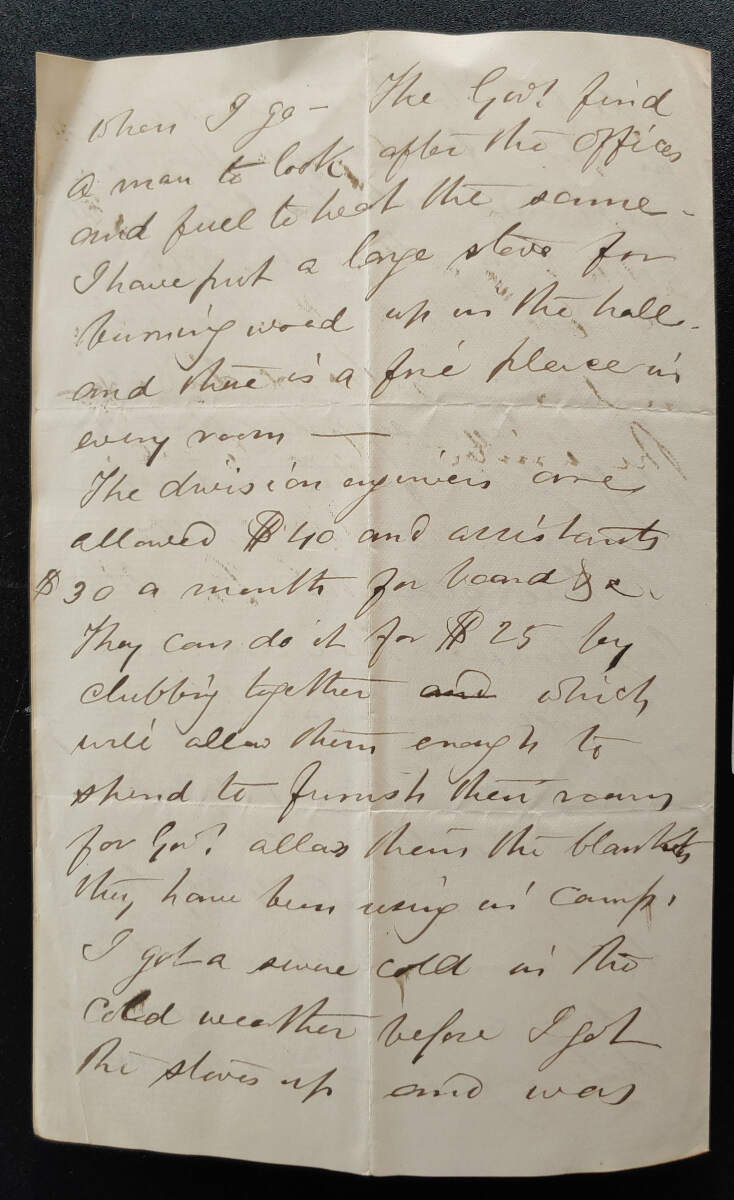 when I go — The Gov.t find
a man to look after the offices
and fuel to heat the same –
I have put a large stove for
burning wood up in the hall.
and there is a fire place in
every room —
The division engineers are
allowed $40 and assistants
$30 a month for board &c.
They can do it for $25 by
clubbing together and which
will allow them enough to
spend to furnish their rooms
for Gov.t allows them the blankets
they have been using in camp.
I got a severe cold in the
cold weather before I got
the stoves up and was